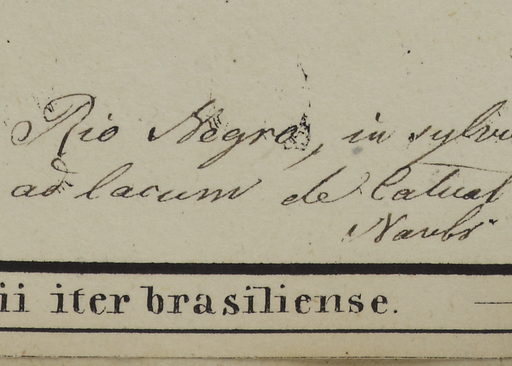 Rio Negro, in sylvi
ad lacum de
Novbr
ii iter brasiliense.